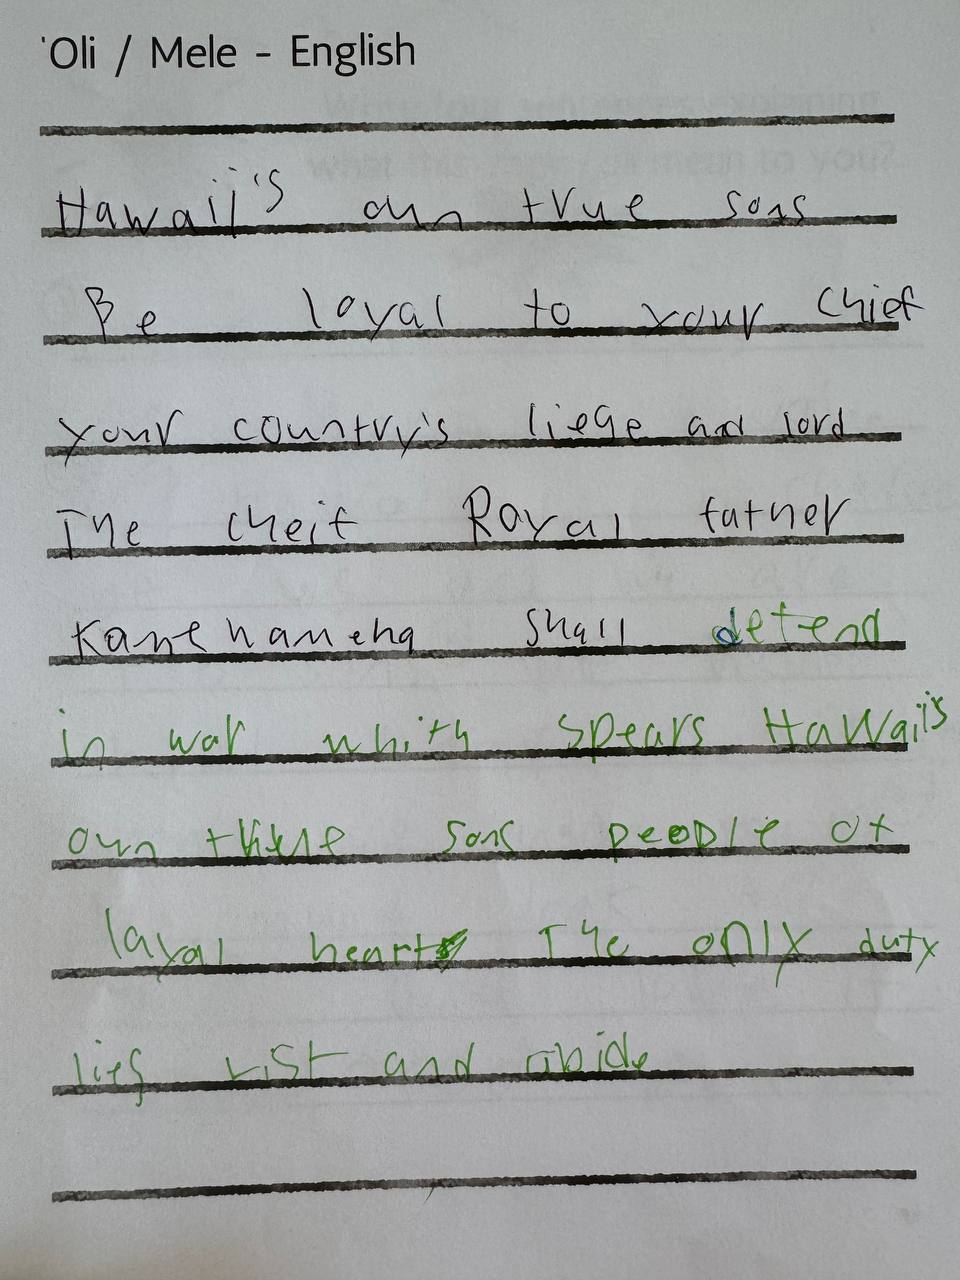 'Oli / Mele - English
Hawaii's own true sons
Be loyal to your chief
your country's liege and lord
The cheif Royal father
Kamehameha shall defend
in war whith spears Hawaii's
own true sons people of
layal heart The only duty
lies list and abide